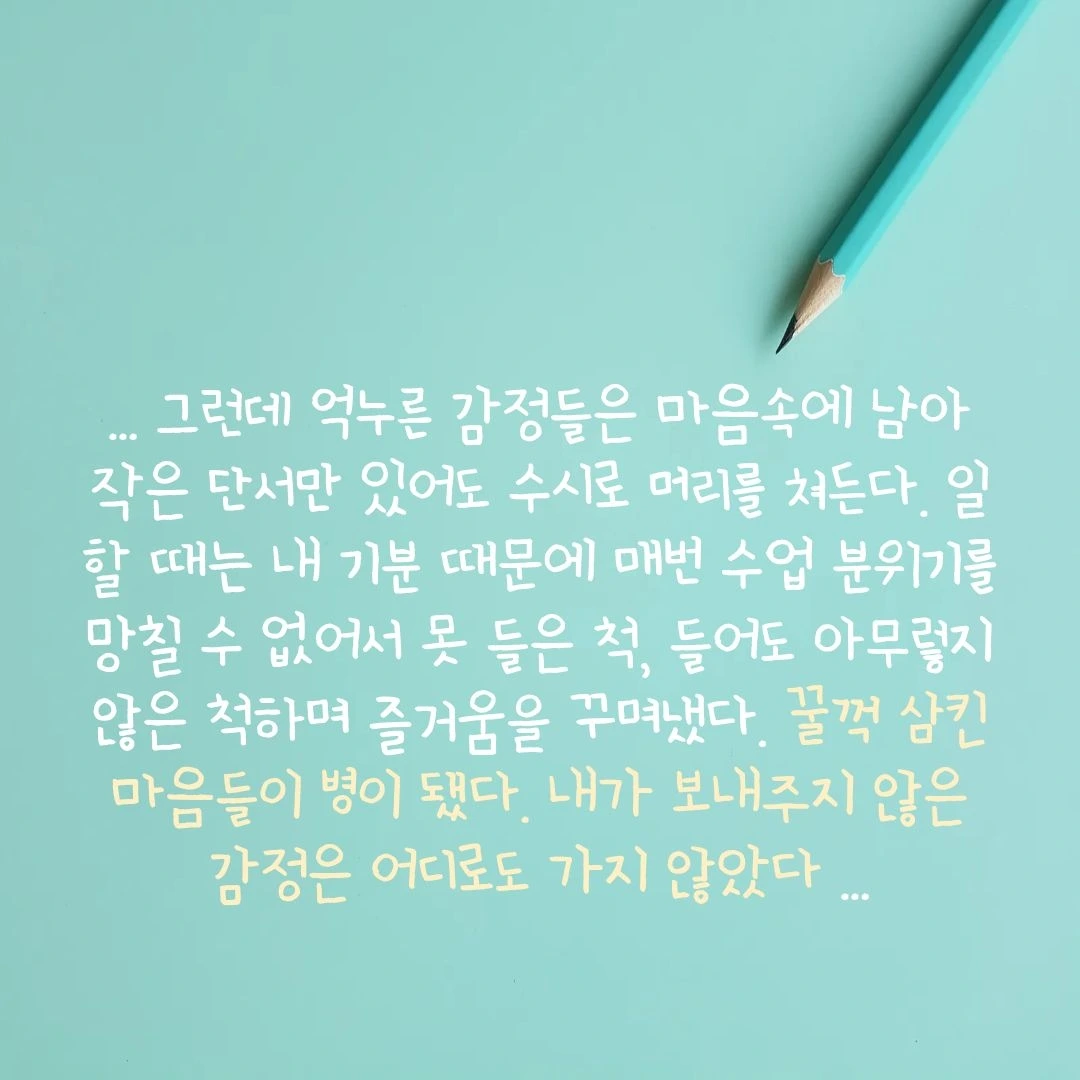 ... 그런데 억누른 감정들은 마음속에 남아
작은 단서만 있어도 수시로 머리를 쳐든다. 일
할 때는 내 기분 때문에 매번 수업 분위기를
망칠 수 없어서 못 들은 척, 들어도 아무렇지
않은 척하며 즐거움을 꾸며냈다. 꿀꺽 삼킨
마음들이 병이 됐다. 내가 보내주지 않은
감정은 어디로도 가지 않았다 ...